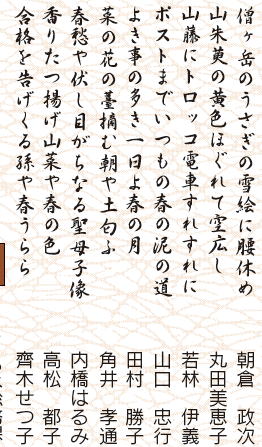 僧ヶ岳のうさぎの雪絵に腰休め 朝倉 政次
山朱萸の黄色ほぐれて空広し 丸田美恵子
山藤にトロッコ電車すれすれに 若林 伊義
ポストまでいつもの春の泥の道 山口 忠行
よき事の多き一日よ春の月 田村 勝子
菜の花の薹摘む朝や土匂ふ 角井 孝通
春愁や伏し目がちなる聖母子像 内橋はるみ
香りたつ揚げ山菜や春の色 高松 都子
合格を告げくる孫や春うらら 齊木せつ子